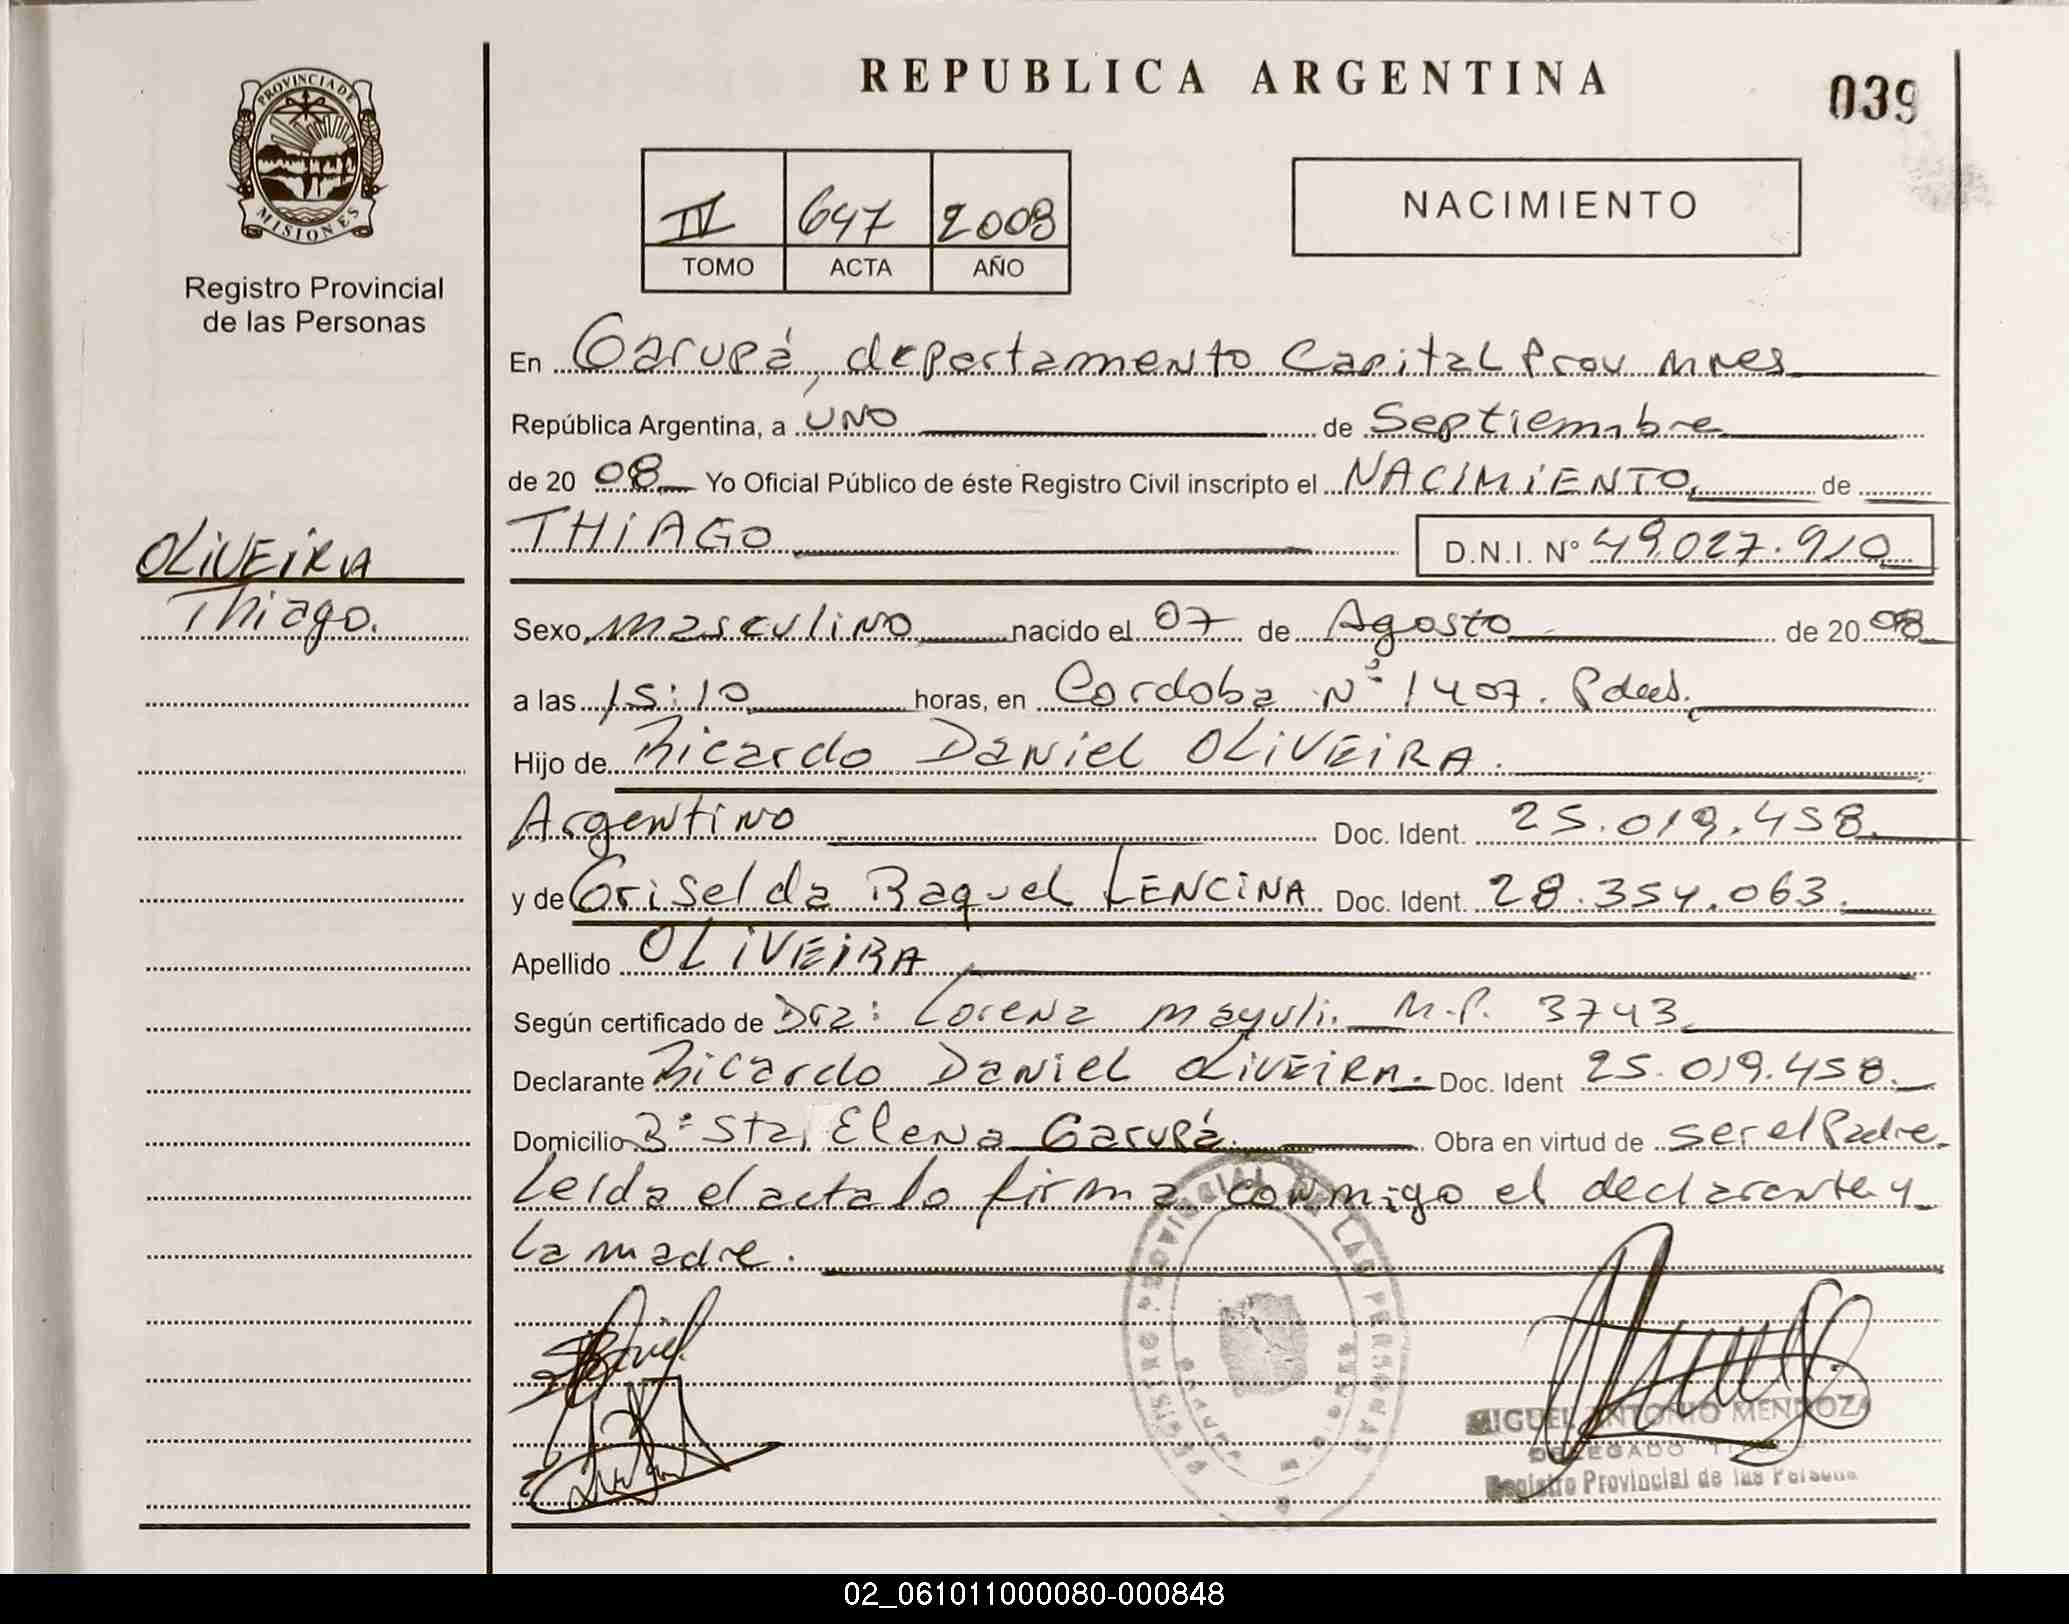 PROVINCIA DE
MISIONES
Registro Provincial
de las Personas
OLIVEIRA
Thiago.
REPUBLICA ARGENTINA
039
IV 647 2008
TOMO ACTA AÑO
NACIMIENTO
En Garupá, departamento Capital Prov Mnes
República Argentina, a UNO de Septiembre
de 20 08 Yo Oficial Público de éste Registro Civil inscripto el NACIMIENTO, de
THIAGO D.N.I. N° 49.027.910
Sexo masculino nacido el 07 de Agosto de 20 08
a las 15:10 horas, en Cordoba N° 1407. Pdas.
Hijo de Ricardo Daniel OLIVEIRA.
Argentino Doc. Ident. 25.019.458.
y de Griselda Raquel LENCINA Doc. Ident. 28.354.063.
Apellido OLIVEIRA
Según certificado de Dra: Lorena Mayuli. M.P. 3743
Declarante Ricardo Daniel OLIVEIRA. Doc. Ident 25.019.458.
Domicilio B° Sta, Elena Garupá. Obra en virtud de ser el Padre
Leida el acta lo firma conmigo el declarante y
la madre.
REGISTRO PROVINCIAL DE LAS PERSONAS
MIGUEL ANTONIO MENDOZA
DELEGADO
Registro Provincial de las Persona
02_061011000080-000848